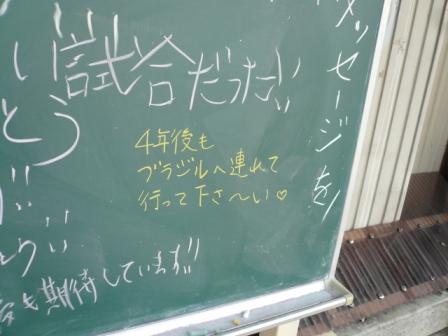 メッセージを
い試合だった!!
とう
4年後も
ブラジルへ連れて
行って下さ～い♡
も期待しています!!